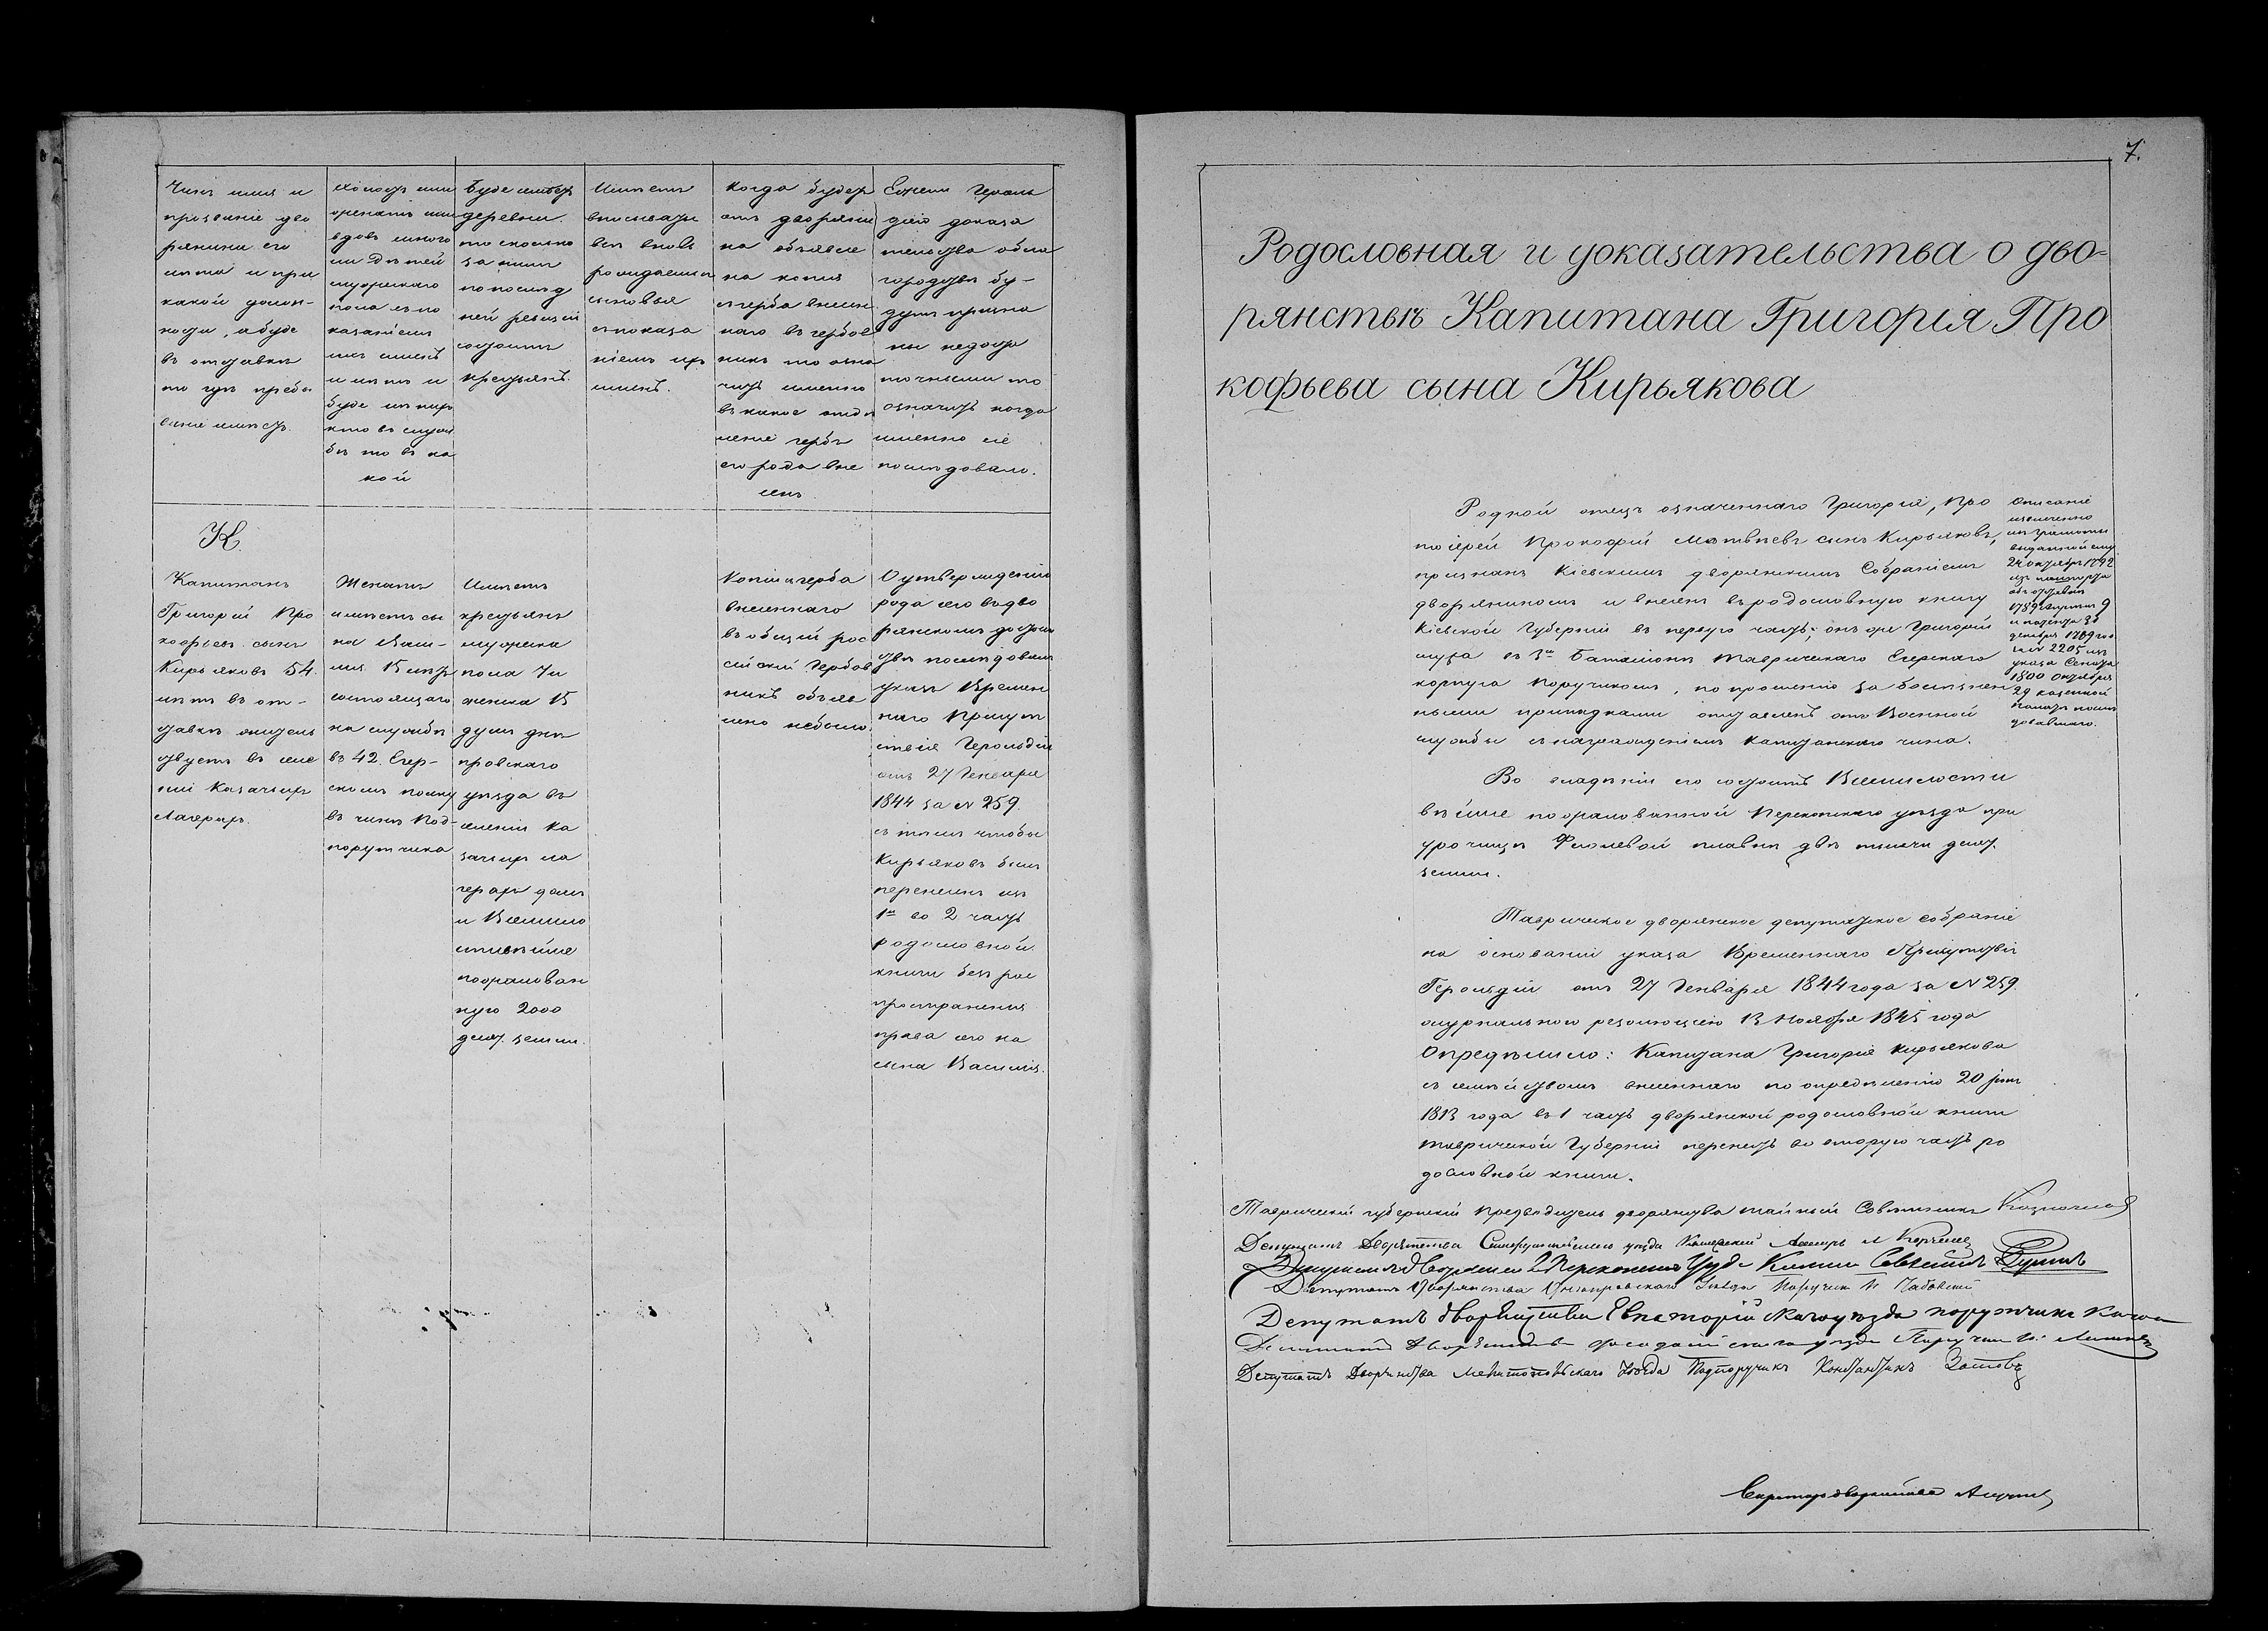 Чинъ имя и
прозваніе дво
рянина его
лѣта и при
какой долж-
ности, а буде
въ отставкѣ
то гдѣ пребы
ваніе имѣетъ.
Холостъ или
женатъ или
вдовъ много
ли дѣтей
мужескаго
пола съ по
казаніемъ
ихъ именъ
и лѣтъ и
буде изъ нихъ
кто въ служ
бѣ то въ ка
кой
Буде имѣетъ
деревни.
то сколько
за нимъ
по послѣд
ней ревизіи
состоитъ
крестьянъ.
Имѣетъ
вписывать
всѣ вновь
рождаемыя
сыновья
съ показа
ніемъ ихъ
именъ.
Когда будетъ
отъ дворяни
на объявле
на копія
съ герба внесен
наго въ гербов
никъ то озна
чить именно
въ какое отдѣ
леніе гербъ
его рода вне
сенъ.
Ежели Героль
діею доказа
тельства о бла
городствѣ бу-
дутъ призна
ны недоста
точными то
означить когда
именно сіе
послѣдовало.
К.
Капитанъ
Григорій Про
кофьевъ сынъ
Кирьяковъ 54.
лѣтъ въ от-
ставкѣ жител
ствуетъ въ селе
ніи Казачьихъ
Лагеряхъ.
Женатъ
имѣетъ сы
на Васи-
лія 15 лѣтъ
состоящаго
на службѣ
въ 42. Егер-
скомъ полку
въ чинѣ Под-
поручика
Имѣетъ
крестьянъ
мужеска
пола 7 и
женска 15
душъ Днѣ
провскаго
уѣзда въ
селеніи Ка
зачьихъ ла
геряхъ домъ
и Всемило
стивѣйше
пожалован
ную 2000
десят. земли.
Копіи съ герба
внесеннаго
въ общій рос
сійскій Гербов
никъ объяв
лено небыло
О утвержденіи
рода его въ дво
рянскомъ достоин
ствѣ послѣдовалъ
указъ Времен
наго Присут
ствія Герольдіи
отъ 27 Генваря
1844 за № 259.
съ тѣмъ чтобы
Кирьяковъ былъ
перенесенъ изъ
1й во 2 часть
родословной
книги безъ рас
пространенія
права его на
сына Василія.
7.
Родословная и доказательства о дво-
рянствѣ Капитана Григорія Про
кофьева сына Кирьякова
Родной отецъ означеннаго Григорія, Про
тоіерей Прокофій Матвѣевъ сынъ Кирьяковъ,
признанъ Кіевскимъ дворянскимъ Собраніемъ
дворяниномъ и внесенъ въ родословную книгу
Кіевской Губерніи въ первую часть; онъ же Григорій
служа въ 3м Баталіонѣ Таврическаго Егерскаго
корпуса Поручикомъ, по прошенію за болѣзнен
ными припадками отставленъ отъ Военной
службы съ награжденіемъ Капитанскаго чина.
Описаніе
извлеченно
изъ грамоты
выданной ему
24 октября 1792
изъ паспорта
объ отставкѣ
1789
указа Сената
1800 октября
29 казенной
палатѣ послѣ
довавшаго.
Во владѣніи его состоитъ Всемилости
вѣйше пожалованной Перекопскаго уѣзда при
урочищѣ плавнѣ двѣ тысячи десят.
земли.
Таврическое дворянское депутатское собраніе
на основаніи указа Временнаго Присутствія
Герольдіи отъ 27 Генваря 1844 года за № 259.
журнальною резолюціею 13 Ноября 1845 года
Опредѣлило: Капитана Григорія Кирьякова
съ семействомъ внесеннаго по опредѣленію 20
1813 года въ 1 часть дворянской родословной книги
Таврической Губерніи перенесть во вторую часть ро
дословной книги.
Таврическій губернскій Предводитель дворянства тайный Совѣтникъ Казначеевъ
Депутатъ Дворянства Симферопольскаго уѣзда
Депутатъ Дворянства Перекопскаго Уѣзда
Депутатъ Дворянства Днѣпровскаго Уѣзда Поручикъ
Депутатъ дворянства Евпаторійскаго уѣзда поручикъ
Депутатъ Дворянства Ѳеодосійскаго уѣзда
Депутатъ Дворянства Мелитопольскаго Уѣзда Подпоручикъ Константинъ
Секретарь дворянства